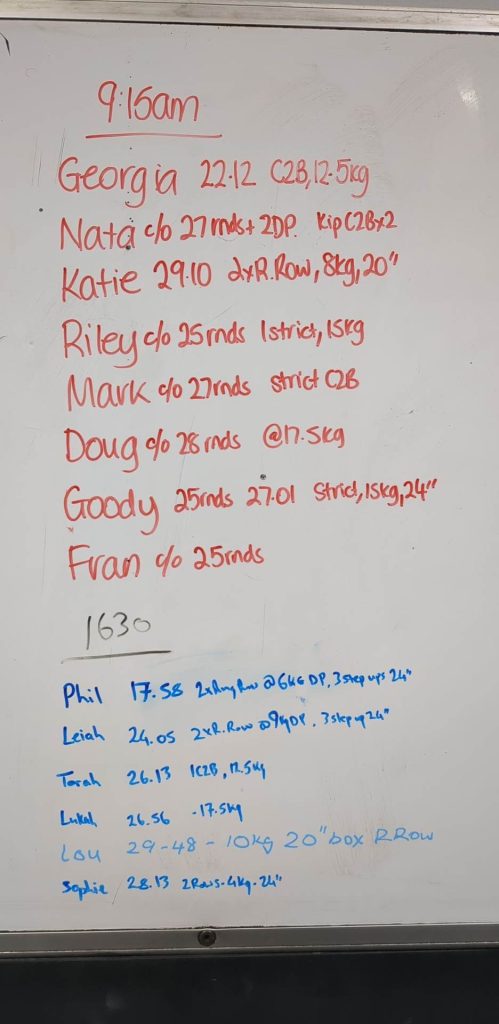 9:15am
Georgia 22.12 C2B, 12.5kg
Nata c/o 27rnds + 2DP. Kip C2Bx2
Katie 29.10 2xR.Row, 8kg, 20"
Riley c/o 25rnds 1strict, 15kg
Mark c/o 27rnds strict C2B
Doug c/o 28rnds @17.5kg
Goody 25rnds 27.01 Strict, 15kg, 24"
Fran c/o 25rnds
1630
Phil 17.58 2xRing Row @6KG DP, 3 step ups 24"
Leiah 24.05 2xR.Row @9kg DP, 3 step up 24"
Tarah 26.13 1C2B, 12.5kg
Lukah 26.56 -17.5kg
Lou 29-48 - 10kg 20" box R Row
Sophie 28.13 2Rows-4kg-24"